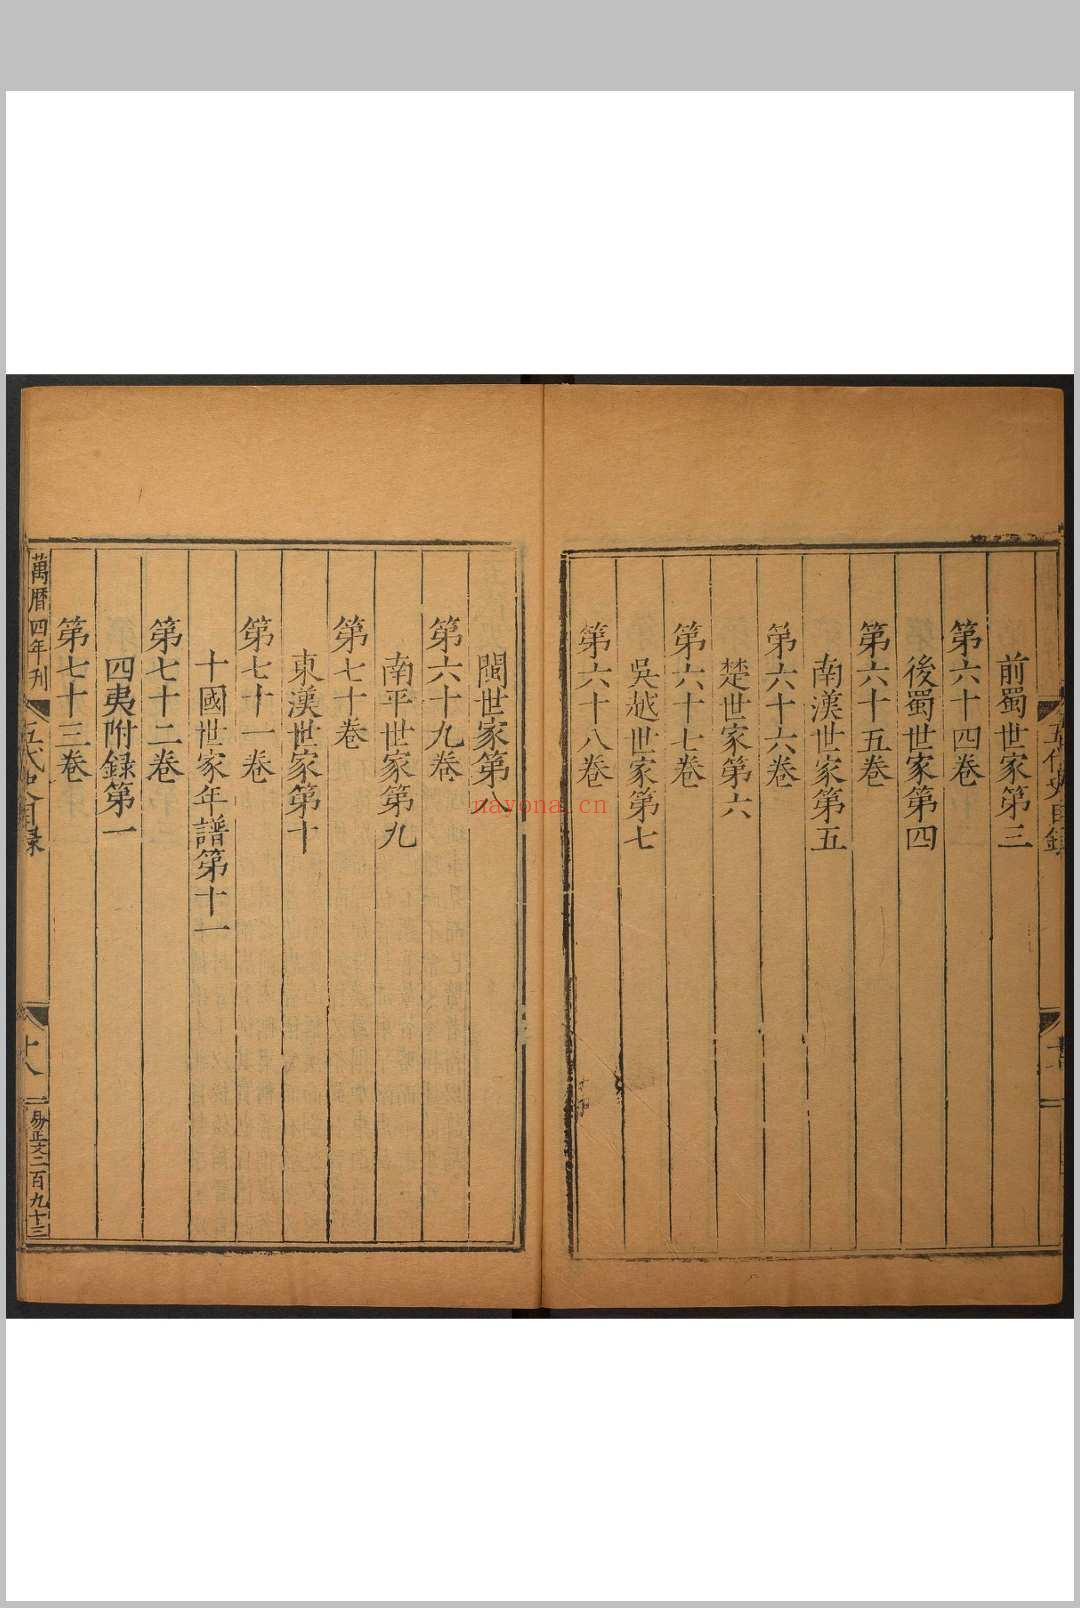 前蜀世家第三
第六十四卷
後蜀世家第四
第六十五卷
南漢世家第五
第六十六卷
楚世家第六
第六十七卷
吳越世家第七
第六十八卷
閩世家第八
第六十九卷
南平世家第九
第七十卷
東漢世家第十
第七十一卷
十國世家年譜第十一
第七十二卷
四夷附録第一
第七十三卷
萬曆四年刋
五代史目録
十八
易正文二百九十三
nayona.cn